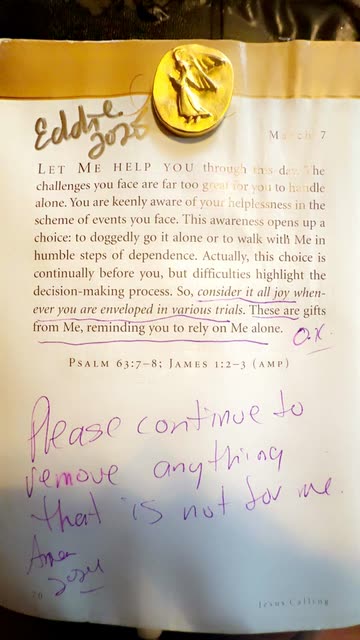 Eddie
2025
March 7
LET ME HELP YOU through this day. The
challenges you face are far too great for you to handle
alone. You are keenly aware of your helplessness in the
scheme of events you face. This awareness opens up a
choice: to doggedly go it alone or to walk with Me in
humble steps of dependence. Actually, this choice is
continually before you, but difficulties highlight the
decision-making process. So, consider it all joy when-
ever you are enveloped in various trials. These are gifts
from Me, reminding you to rely on Me alone.
PSALM 63:7–8; JAMES 1:2–3 (AMP)
Please continue to
remove anything
that is not for me.
Amen
2024
76
Jesus Calling